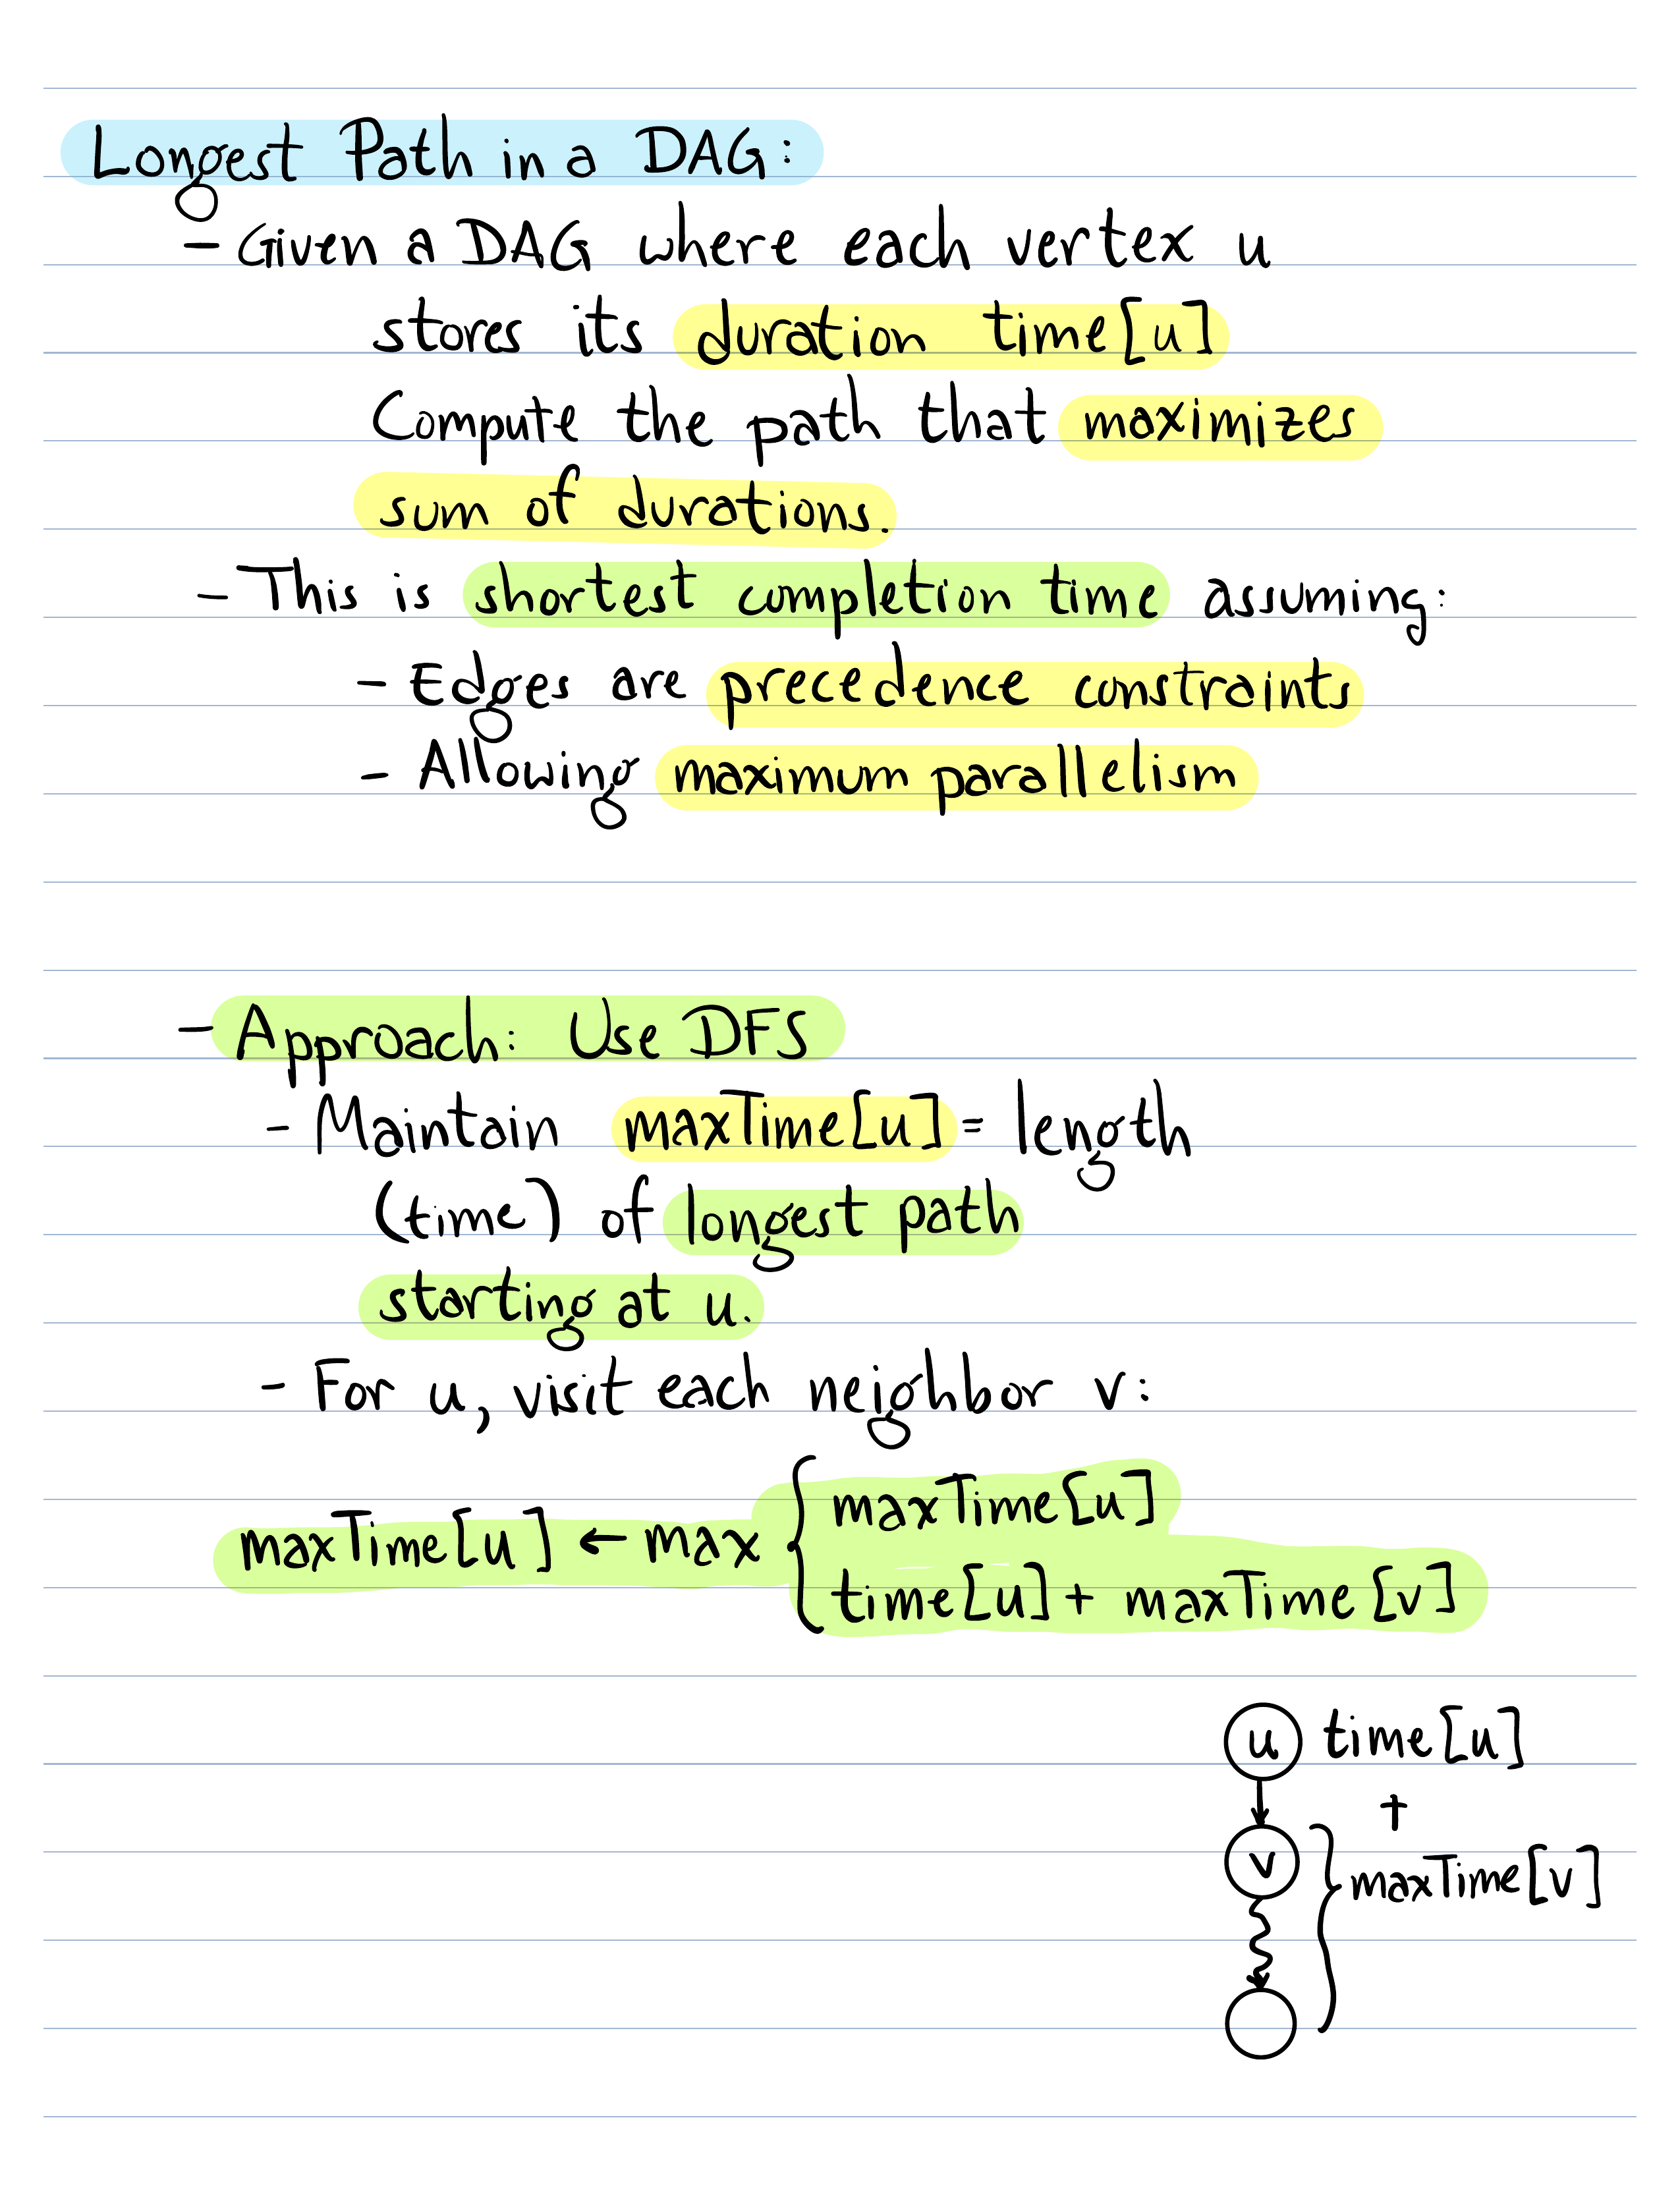 Longest Path in a DAG:
- Given a DAG where each vertex u
stores its duration time[u]
Compute the path that maximizes
sum of durations.
- This is shortest completion time assuming:
- Edges are precedence constraints
- Allowing maximum parallelism
- Approach: Use DFS
- Maintain maxTime[u] = length
(time) of longest path
starting at u.
- For u, visit each neighbor v:
maxTime[u] ← max { maxTime[u]
time[u] + maxTime[v]
u time[u]
+
v } maxTime[v]